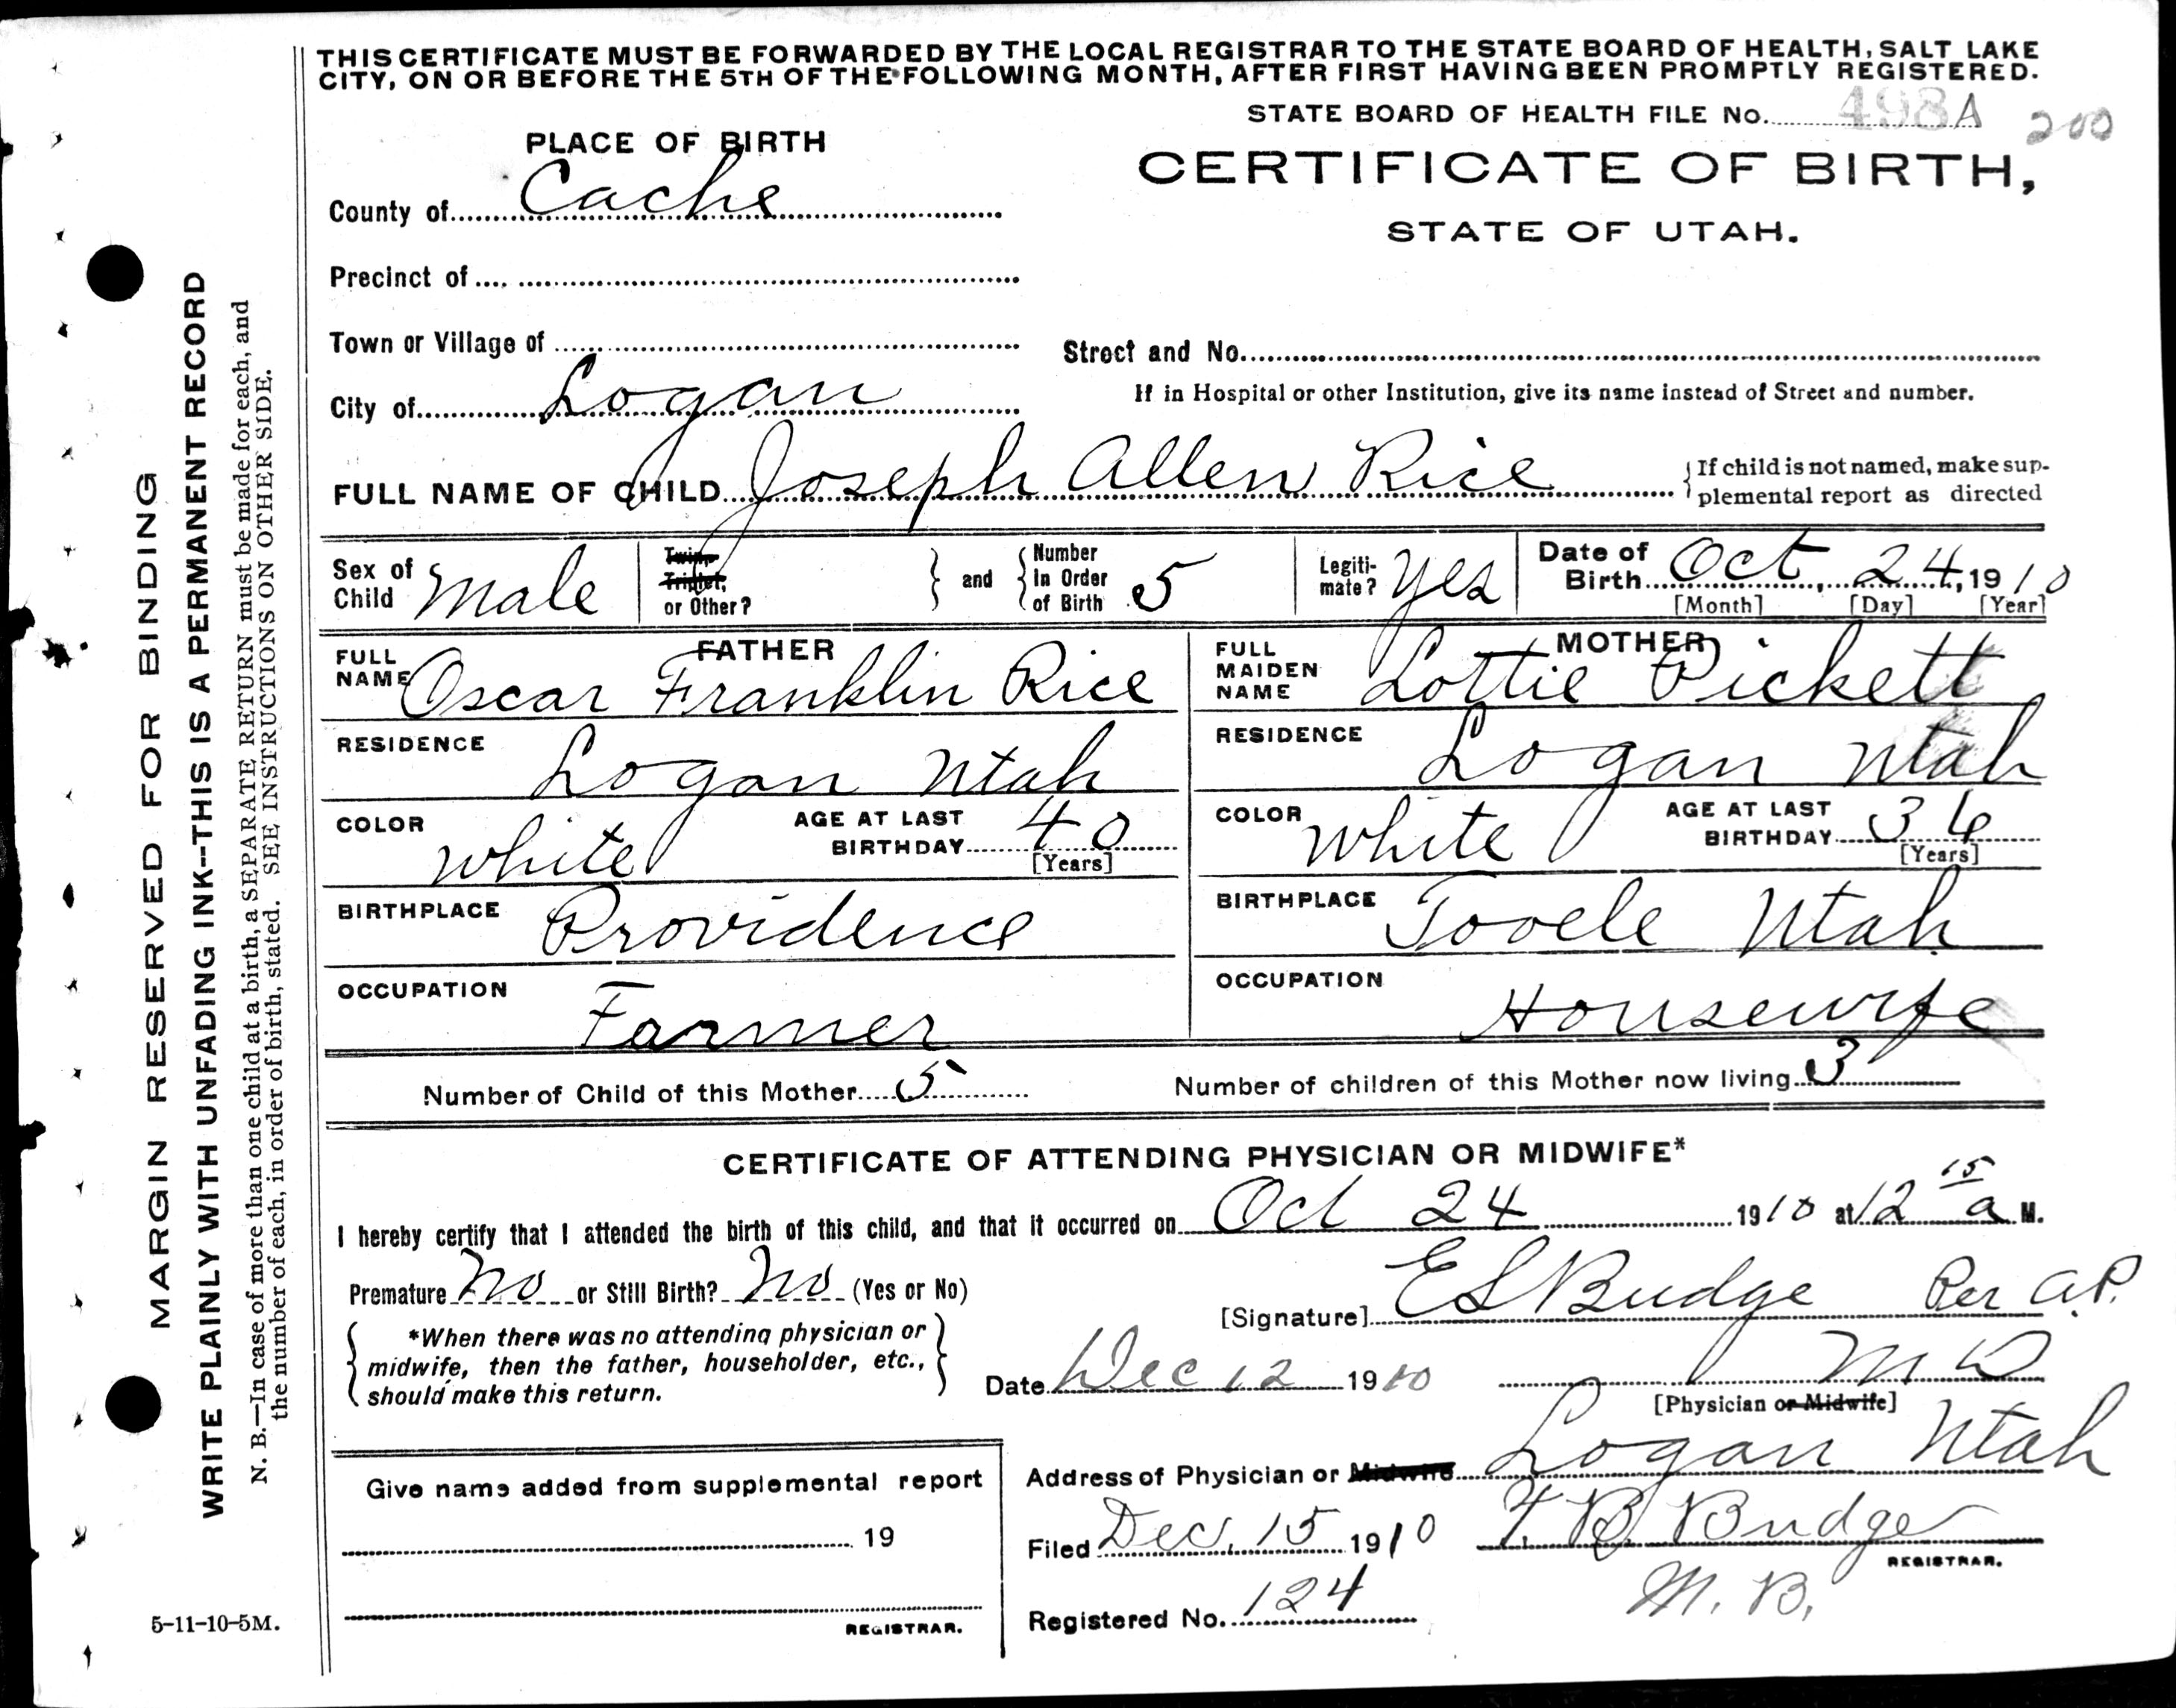 THIS CERTIFICATE MUST BE FORWARDED BY THE LOCAL REGISTRAR TO THE STATE BOARD OF HEALTH, SALT LAKE
CITY, ON OR BEFORE THE 5TH OF THE FOLLOWING MONTH, AFTER FIRST HAVING BEEN PROMPTLY REGISTERED.
STATE BOARD OF HEALTH FILE No. 498 A 200
PLACE OF BIRTH
CERTIFICATE OF BIRTH,
STATE OF UTAH.
County of Cache
Precinct of
Town or Village of
Street and No.
City of Logan
If in Hospital or other Institution, give its name instead of Street and number.
FULL NAME OF CHILD Joseph Allen Rice
{If child is not named, make sup-
plemental report as directed
Sex of Child Male
Twin, Triplet, or Other?
} and { Number In Order of Birth 5
Legiti-mate? Yes
Date of Birth Oct 24, 1910
[Month] [Day] [Year]
FATHER
FULL NAME Oscar Franklin Rice
RESIDENCE Logan Utah
COLOR White AGE AT LAST BIRTHDAY 40 [Years]
BIRTHPLACE Providence
OCCUPATION Farmer
MOTHER
FULL MAIDEN NAME Lottie Pickett
RESIDENCE Logan Utah
COLOR White AGE AT LAST BIRTHDAY 36 [Years]
BIRTHPLACE Tooele Utah
OCCUPATION Housewife
Number of Child of this Mother 5 Number of children of this Mother now living 3
CERTIFICATE OF ATTENDING PHYSICIAN OR MIDWIFE*
I hereby certify that I attended the birth of this child, and that it occurred on Oct 24 1910 at 12 15 a M.
Premature No or Still Birth? No (Yes or No)
[Signature] E S Budge Per A.P.
{ *When there was no attending physician or
midwife, then the father, householder, etc.,
should make this return. }
Date Dec 12 1910 M D
[Physician or Midwife]
Address of Physician or Midwife Logan Utah
Filed Dec. 15 1910 T. B. Budge
REGISTRAR.
M. B.
Registered No. 124
Give name added from supplemental report
19
REGISTRAR.
MARGIN RESERVED FOR BINDING
WRITE PLAINLY WITH UNFADING INK--THIS IS A PERMANENT RECORD
N. B.—In case of more than one child at a birth, a SEPARATE RETURN must be made for each, and
the number of each, in order of birth, stated. SEE INSTRUCTIONS ON OTHER SIDE.
5-11-10-5M.